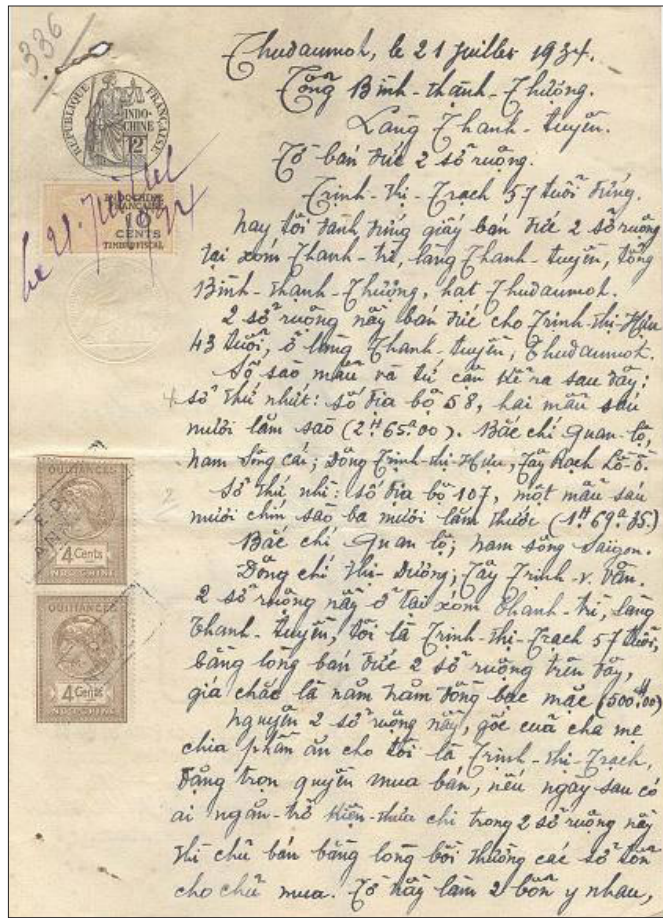 336
RÉPUBLIQUE FRANÇAISE
INDO-
CHINE
12
INDOCHINE
FRANÇAISE
CENTS
TIMBRE FISCAL
le 21 Juillet
1934
Thudaumot, le 21 Juillet 1934.
Tổng Bình-thạnh-Thượng.
Làng Thanh-tuyền.
Tờ bán đứt 2 sở ruộng.
Trịnh-thị-Trạch 57 tuổi đứng.
Nay tôi đành đứng giấy bán đứt 2 sở ruộng
tại xóm Thanh-trì, làng Thanh-tuyền, tổng
Bình-thạnh-Thượng, hạt Thudaumot.
2 sở ruộng nầy bán đứt cho Trịnh-thị-Hựu
43 tuổi, ở làng Thanh-tuyền, Thudaumot.
Số sào mẫu và tứ cận kê ra sau đây:
sở thứ nhứt: số địa bộ 58, hai mẫu sáu
mươi lăm sào (2H 65a 00). Bắc chí Quan-lộ,
Nam Sông cái; Đông Trịnh-thị-Hựu, Tây Rạch Lồ-Ồ.
Sở thứ nhì: số địa bộ 107, một mẫu sáu
mươi chín sào ba mươi lăm thước (1H 69a 35)
Bắc chí Quan lộ; Nam sông Saigon.
Đông chí Thị-Dương; Tây Trịnh-v. Vân.
2 sở ruộng nầy ở tại xóm Thanh-trì, làng
Thanh-tuyền, tôi là Trịnh-thị-Trạch 57 tuổi,
bằng lòng bán đứt 2 sở ruộng trên đây,
giá chắc là năm trăm đồng bạc mặc (500$00)
Nguyên 2 sở ruộng nầy, gốc của cha mẹ
chia phần ăn cho tôi là Trịnh-thị-Trạch,
đặng trọn quyền mua bán, nếu ngày sau có
ai ngăn-trở kiện-thưa chi trong 2 sở ruộng nầy
thì chủ bán bằng lòng bồi thường các số tổn
cho chủ mua. Tờ nầy làm 2 bổn y nhau,
QUITTANCES
4 Cents
INDOCHINE
QUITTANCES
4 Cents
INDOCHINE